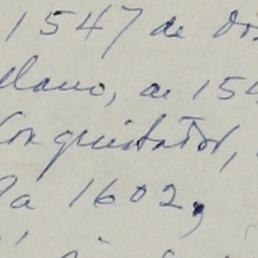 1547 de do
llano, de 154
Conquistador,
la 1602,